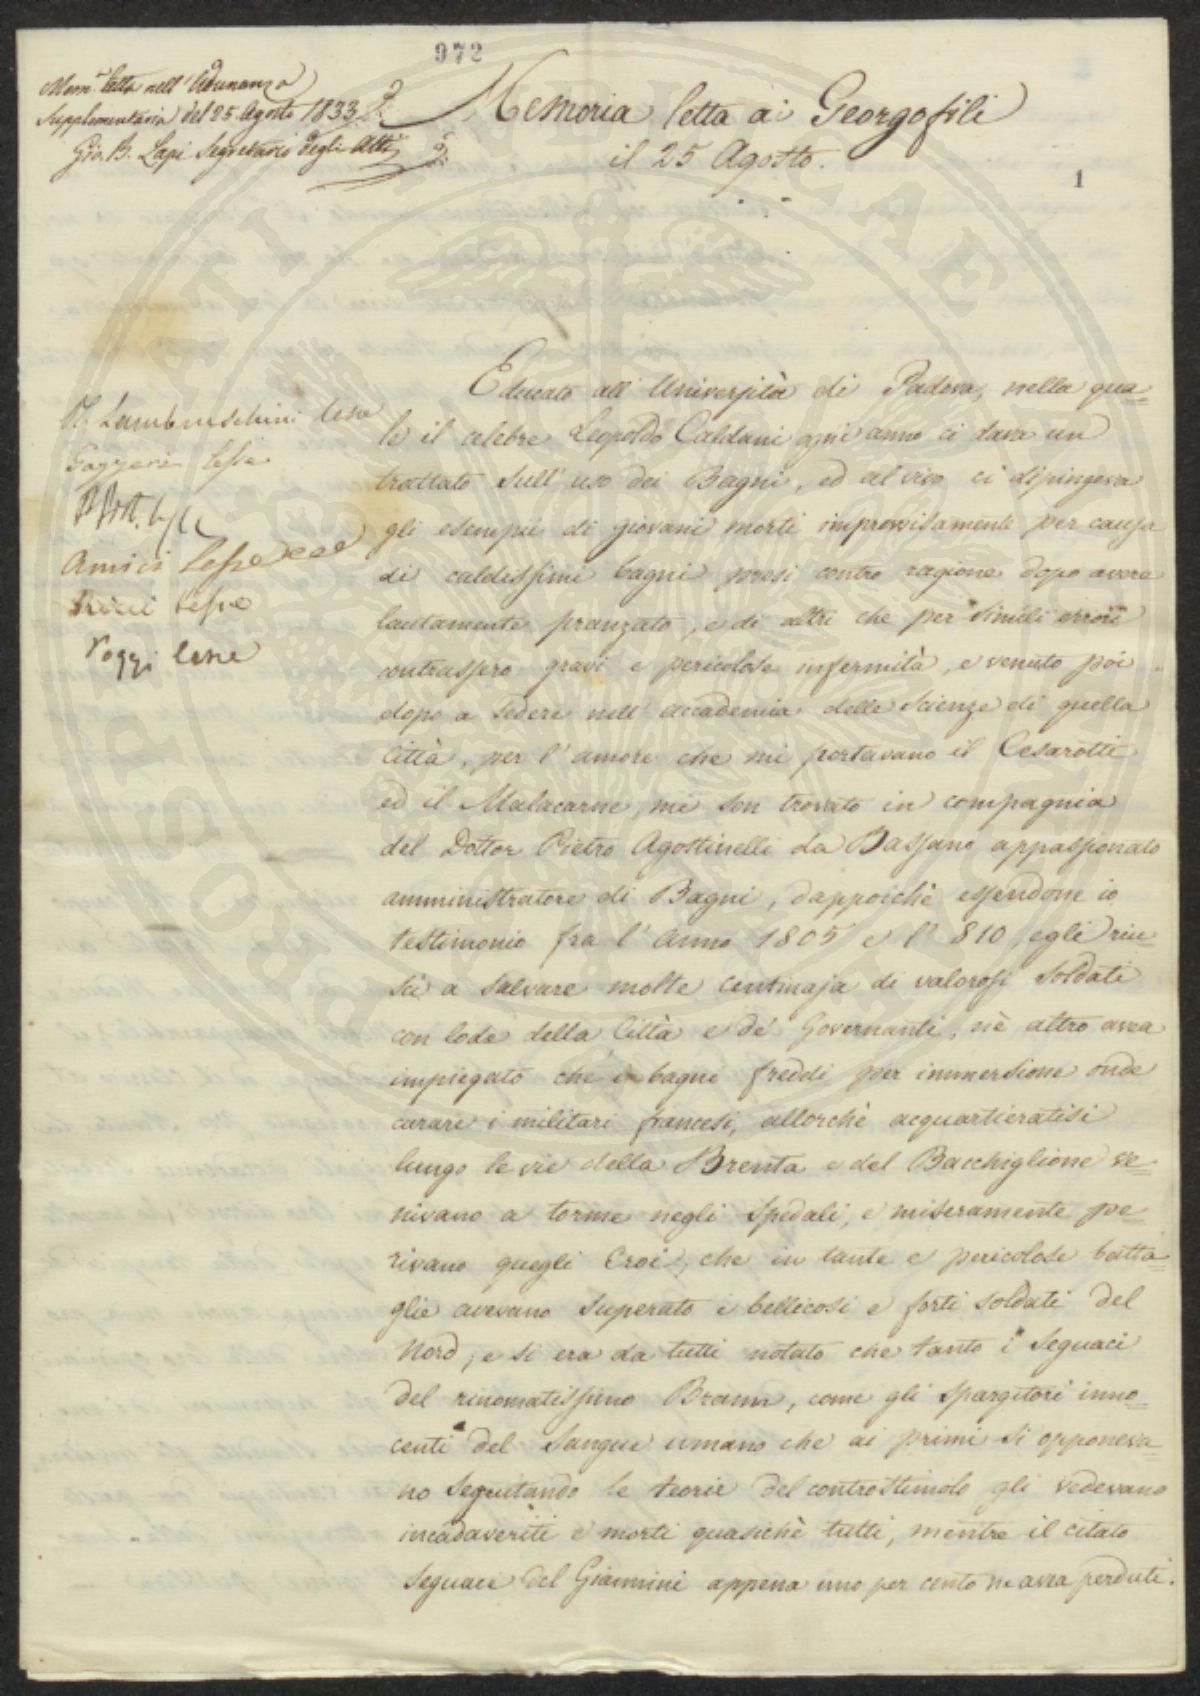 972
Mem.ª letta nell'Adunanza
Supplementaria del 25. Agosto 1833
Gio. B. Lapi Segretario degli Atti
Memoria letta ai Georgofili
il 25 Agosto.
1
R. Lambruschini lesse
Gazzeri lesse
Amici lesse
Ricci lesse
Poggi lesse
Educato all'Università di Padova, nella qua-
le il celebre Leopoldo Caldani ogni anno ci dava un
trattato sull'uso dei Bagni, ed al vivo ci dipingeva
gli esempii di giovani morti improvvisamente per causa
di caldissimi bagni presi contro ragione dopo avere
lautamente pranzato, e di altri che per simili errori
contrassero gravi e pericolose infermità, e venuto poi
dopo a sedere nell'accademia delle Scienze di quella
Città, per l'amore che mi portavano il Cesarotti
ed il Malacarne, mi son trovato in compagnia
del Dottor Pietro Agostinelli da Bassano appassionato
amministratore di Bagni, dappoichè essendone io
testimonio fra l'anno 1805 e l'810 egli riu-
scì a salvare molte centinaja di valorosi Soldati
con lode della Città e de' Governanti, nè altro avea
impiegato che i bagni freddi per immersione onde
curare i militari francesi, allorchè acquartieratisi
lungo le vie della Brenta e del Bacchiglione ve-
nivano a torme negli Spedali, e miseramente pe-
rivano quegli Eroi, che in tante e pericolose batta-
glie avevano superato i bellicosi e forti soldati del
Nord, e si era da tutti notato che tanto i Seguaci
del rinomatissimo Brown, come gli Spargitori inno-
centi del Sangue umano che ai primi si opponeva-
no seguitando le teorie del controstimolo gli vedevano
incadaveriti e morti quasichè tutti, mentre il citato
Seguace del Giannini appena uno per cento ne avea perduti.